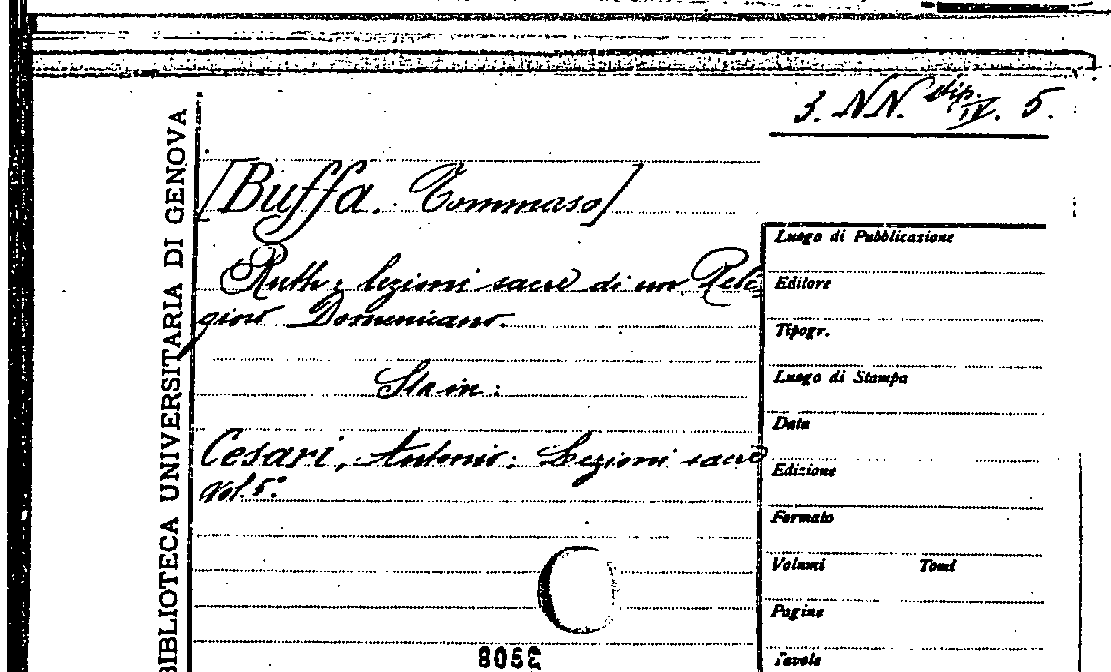 3. NN. dip. IV. 5.
BIBLIOTECA UNIVERSITARIA DI GENOVA
[Buffa. Tommaso]
Ruth; lezioni sacre di un Reli
gioso Domenicano.
Sta in:
Cesari, Antonio: Lezioni sacre
Vol. 5.°
Luogo di Pubblicazione
Editore
Tipogr.
Luogo di Stampa
Data
Edizione
Formato
Volumi Tomi
Pagine
Tavole